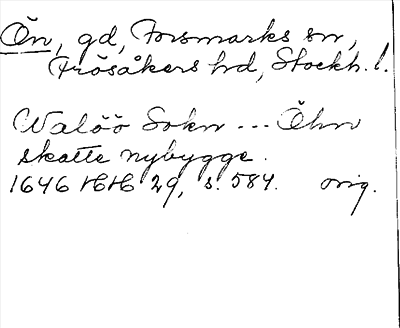 Ön, gd, Forsmarks sn,
Frösåkers hd, Stockh. l.
Walöö Sokn ... Öhn
skatte nybygge.
1646 HH 29, s. 584. orig.